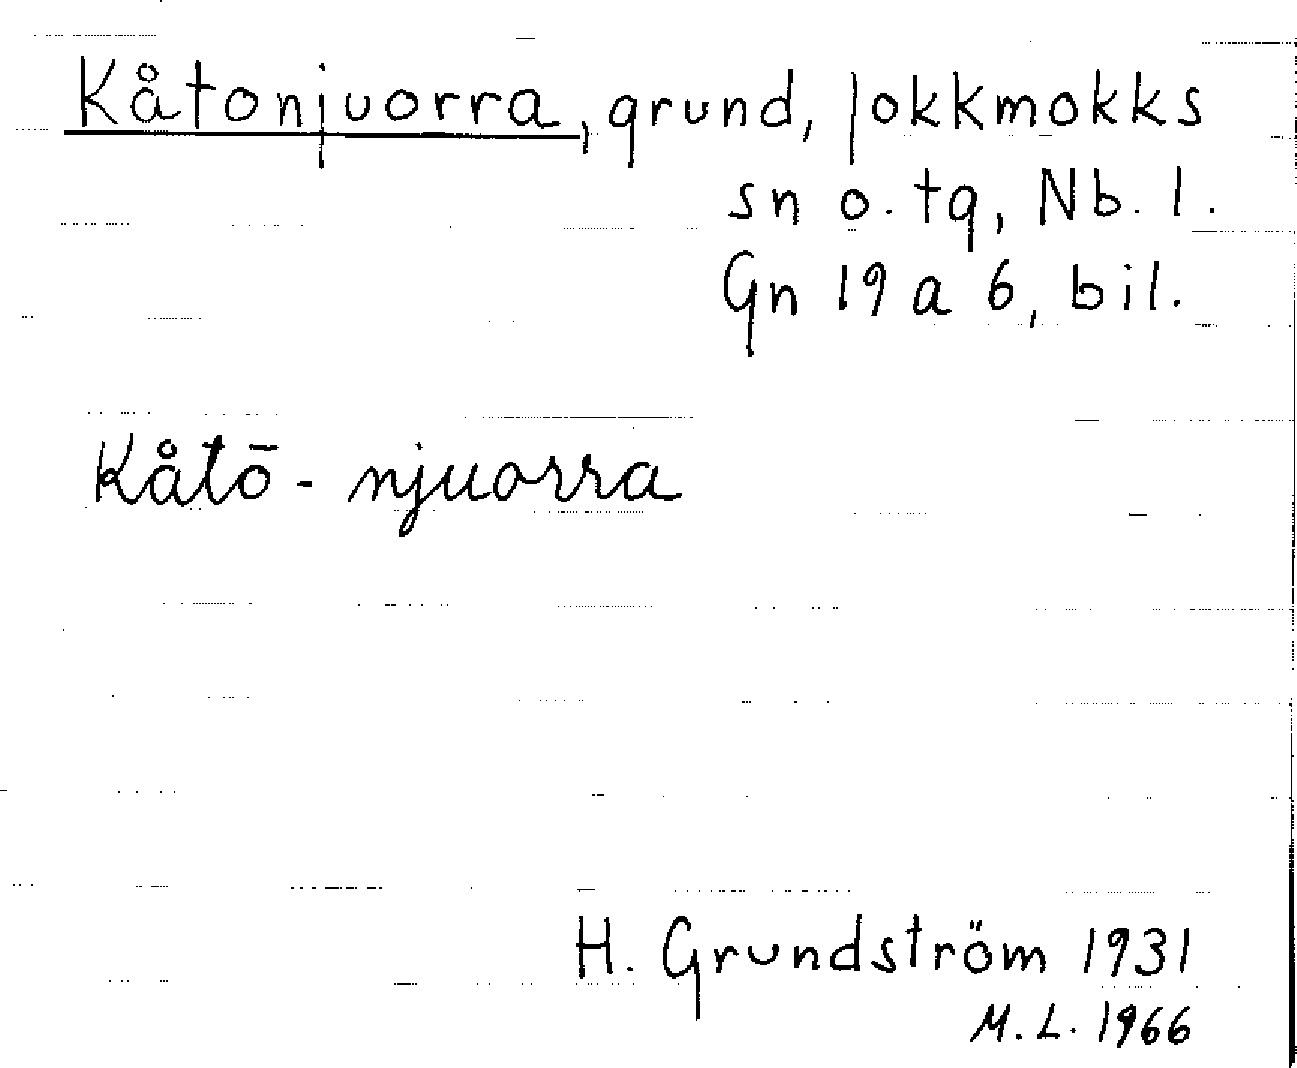 Kåtonjuorra, grund, Jokkmokks
sn o. tg, Nb. l.
Gn 19 a 6, bil.
Kåtō - njuorra
H. Grundström 1931
M. L. 1966